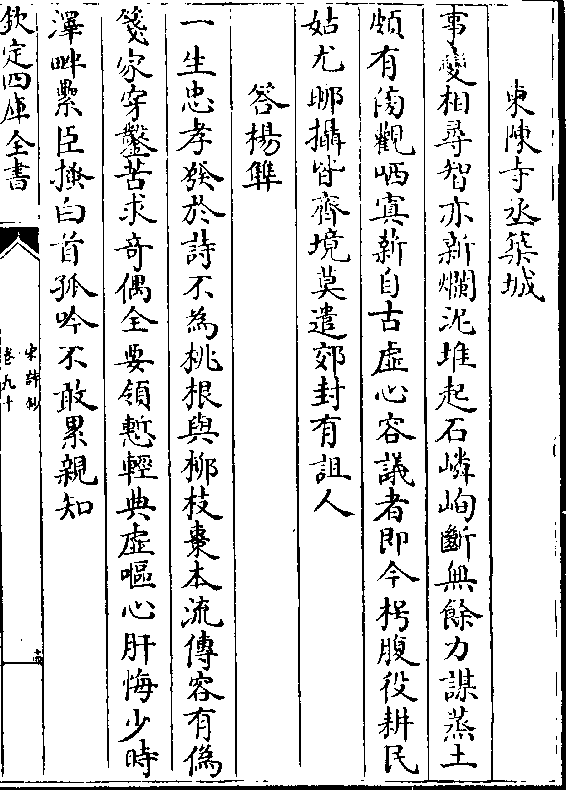 柬陳寺丞築城
事變相尋智亦新爛泥堆起石嶙峋斷無餘力謀蒸土
頗有閒觀哂寘薪自古虛心容議者即今枵腹役耕民
姑尤聊攝皆齊境莫遣郊封有詛人
答楊雙
一生忠孝發於詩不為桃根與柳枝棗本流傳容有偽
箋家穿鑿苦求奇偶全要領慙輕典虛嘔心肝悔少時
澤畔纍臣搔白首孤吟不敢累親知
欽定四庫全書
宋詩鈔
卷九十